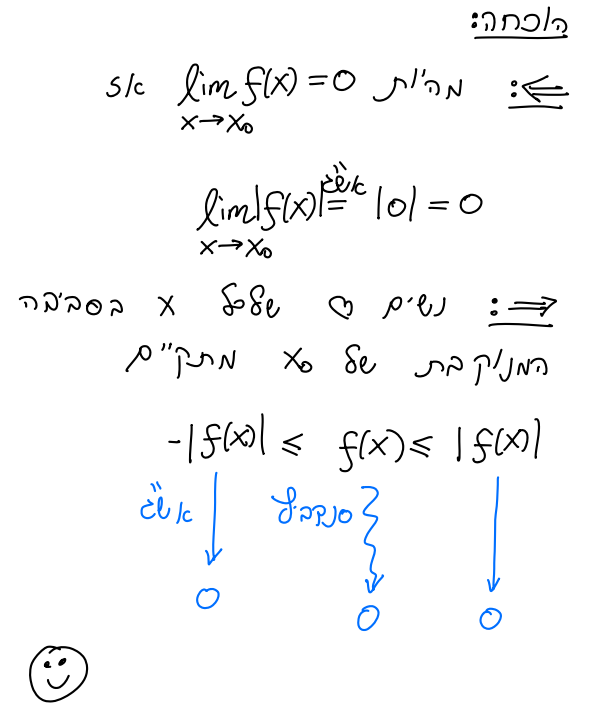 הוכחה:
⇐: מהיות lim f(x) = 0 אז
x→x₀
אש"ג
lim |f(x)| = |0| = 0
x→x₀
⇒: נשים ♡ שלכל x בסביבה
המנוקבת של x₀ מתקיים
-|f(x)| ≤ f(x) ≤ |f(x)|
אש"ג סנדביץ'
0 0 0